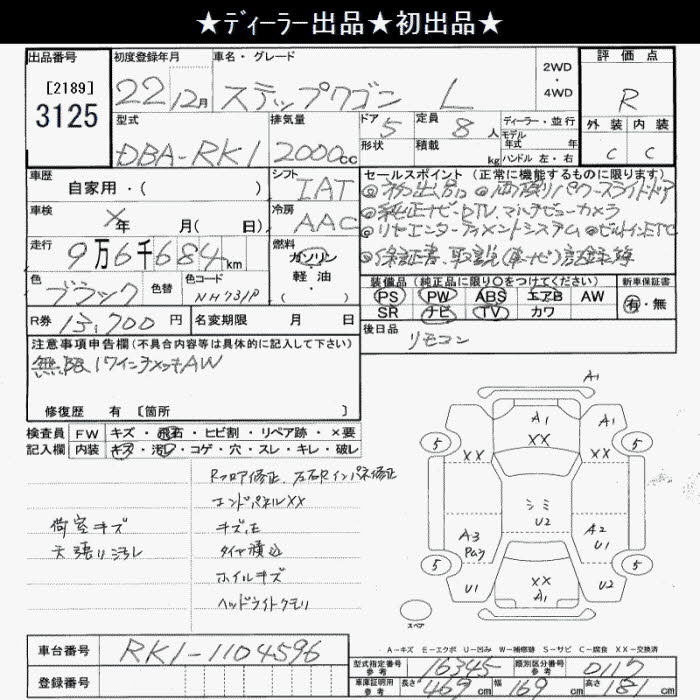 ★ディーラー出品★初出品★
出品番号 初度登録年月 車名・グレード 2WD・4WD 評価点
[2189] 3125 22 12月 ステップワゴン L R
型式 排気量 ドア 5 定員 8人 ディーラー・並行 外装 内装
DBA-RK1 2000cc 形状 積載 kg モデル年式 年 C C
ハンドル 左・右
車歴 自家用・( ) シフト IAT セールスポイント(正常に機能するものに限ります)
◎初出品 ◎両側パワースライドドア
車検 ×年 月(日) 冷房 AAC ◎純正ナビ・DTV.マルチビューカメラ
◎リヤエンターテイメントシステム ◎ビルトインETC
走行 9万6千684km 燃料 ガソリン・軽・油( ) ◎保証書、取説(車・ナビ)記録簿
色 ブラック 色替 色コード NH731P 装備品(純正品に限り○をつけてください) 新車保証書
PS PW ABS エアB AW 有・無
SR ナビ TV カワ
R券 13,700円 名変期限 月 日 後日品 リモコン
注意事項申告欄(不具合内容等は具体的に記入して下さい)
無限17インチメッキAW
修復歴 有 [箇所 ]
検査員記入欄 FW キズ・飛石・ヒビ割・リペア跡・×要
内装 キズ・汚れ・コゲ・穴・スレ・キレ・破レ
Rフロア修正、左右Rインパネ修正
エンドパネルXX
荷室キズ キズ凹
天張り汚れ タイヤ積込
ホイルキズ
ヘッドライトクモリ
A1
A1 A1
5 XX XX XX 5
シミ
U2
A3 A2
Pay U1
5 XX 5
U1 A1 U2
スペア
A-キズ E-エクボ U-凹み W-補修跡 S-サビ C-腐食 XX-交換済
車台番号 RK1-1104596 型式指定番号 参考 16345 類別区分番号 参考 0117
登録番号 車庫証明用 参考 長さ 469cm 幅 169cm 高さ 181cm